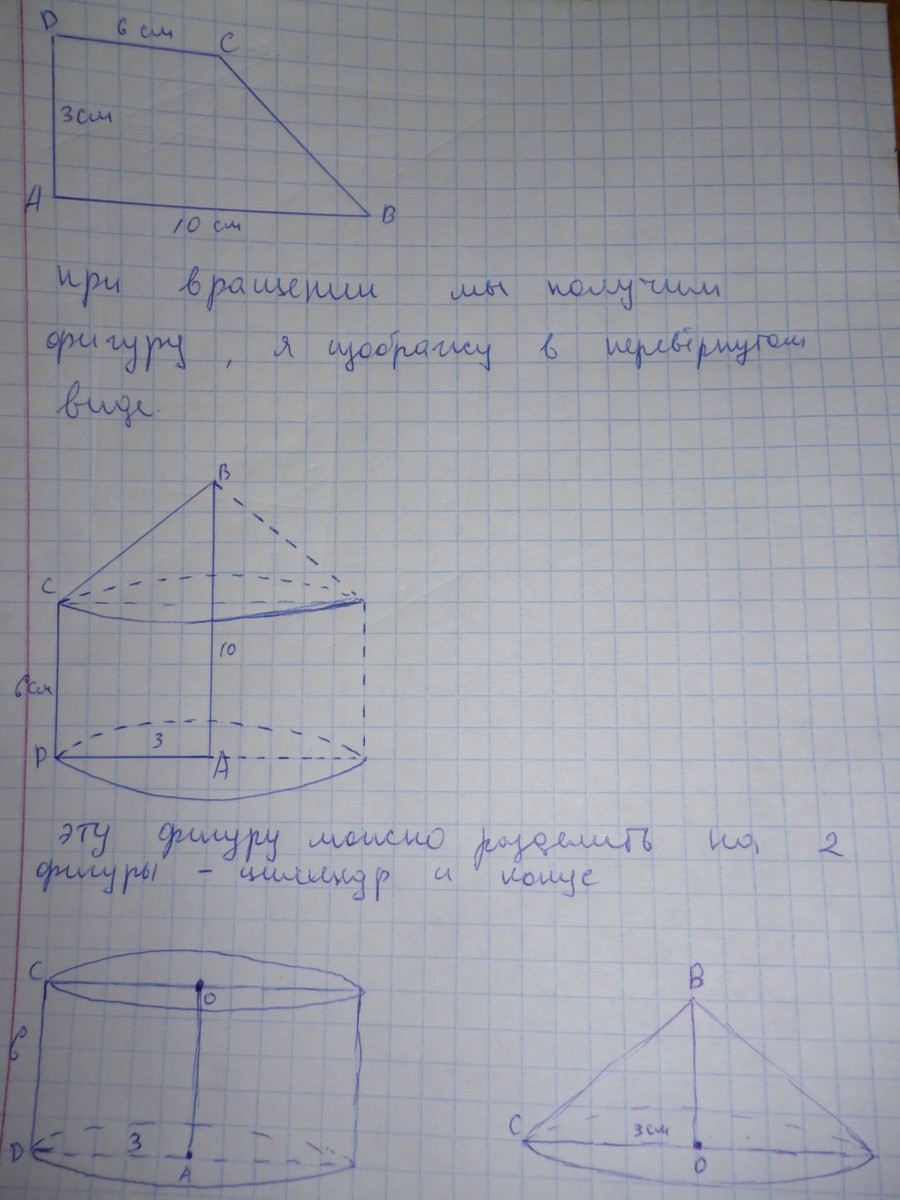 D
6 см
C
3см
A
10 см
B
при вращении мы получим
фигуру, я изображу в перевёрнутом
виде.
B
C
10
6см
D
3
A
эту фигуру можно разделить на 2
фигуры - цилиндр и конус
C
O
6
D
3
A
B
C
3см
O